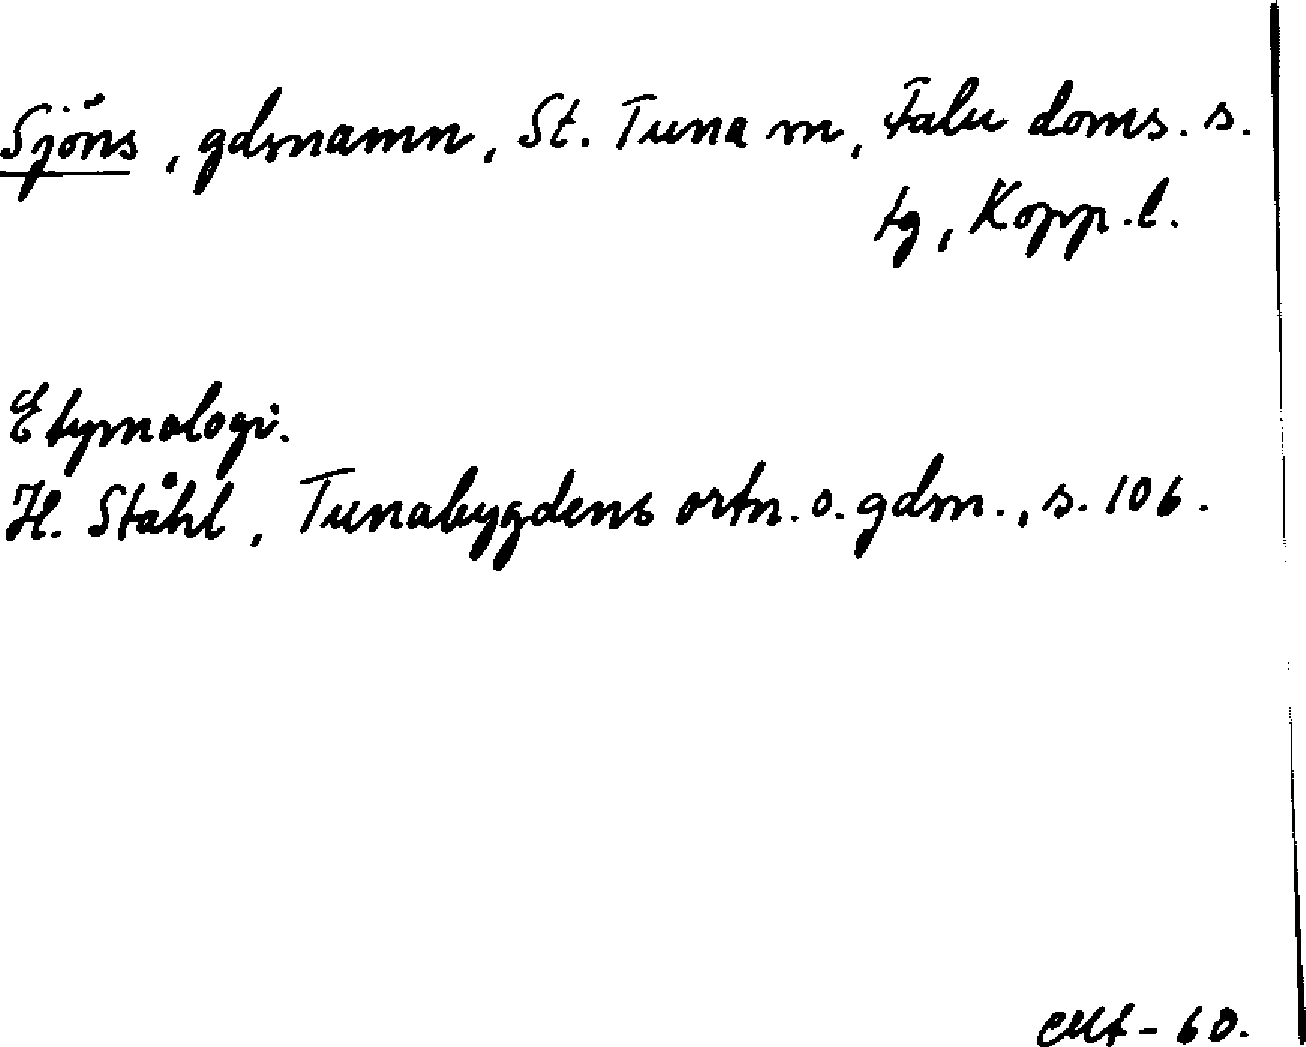 Sjöns, gdmnamn, St. Tuna sn, Falu doms. s.
tg, Kopp. l.
Etymologi.
H. Ståhl, Tunabygdens ortn. o. gdm., s. 106.
60.